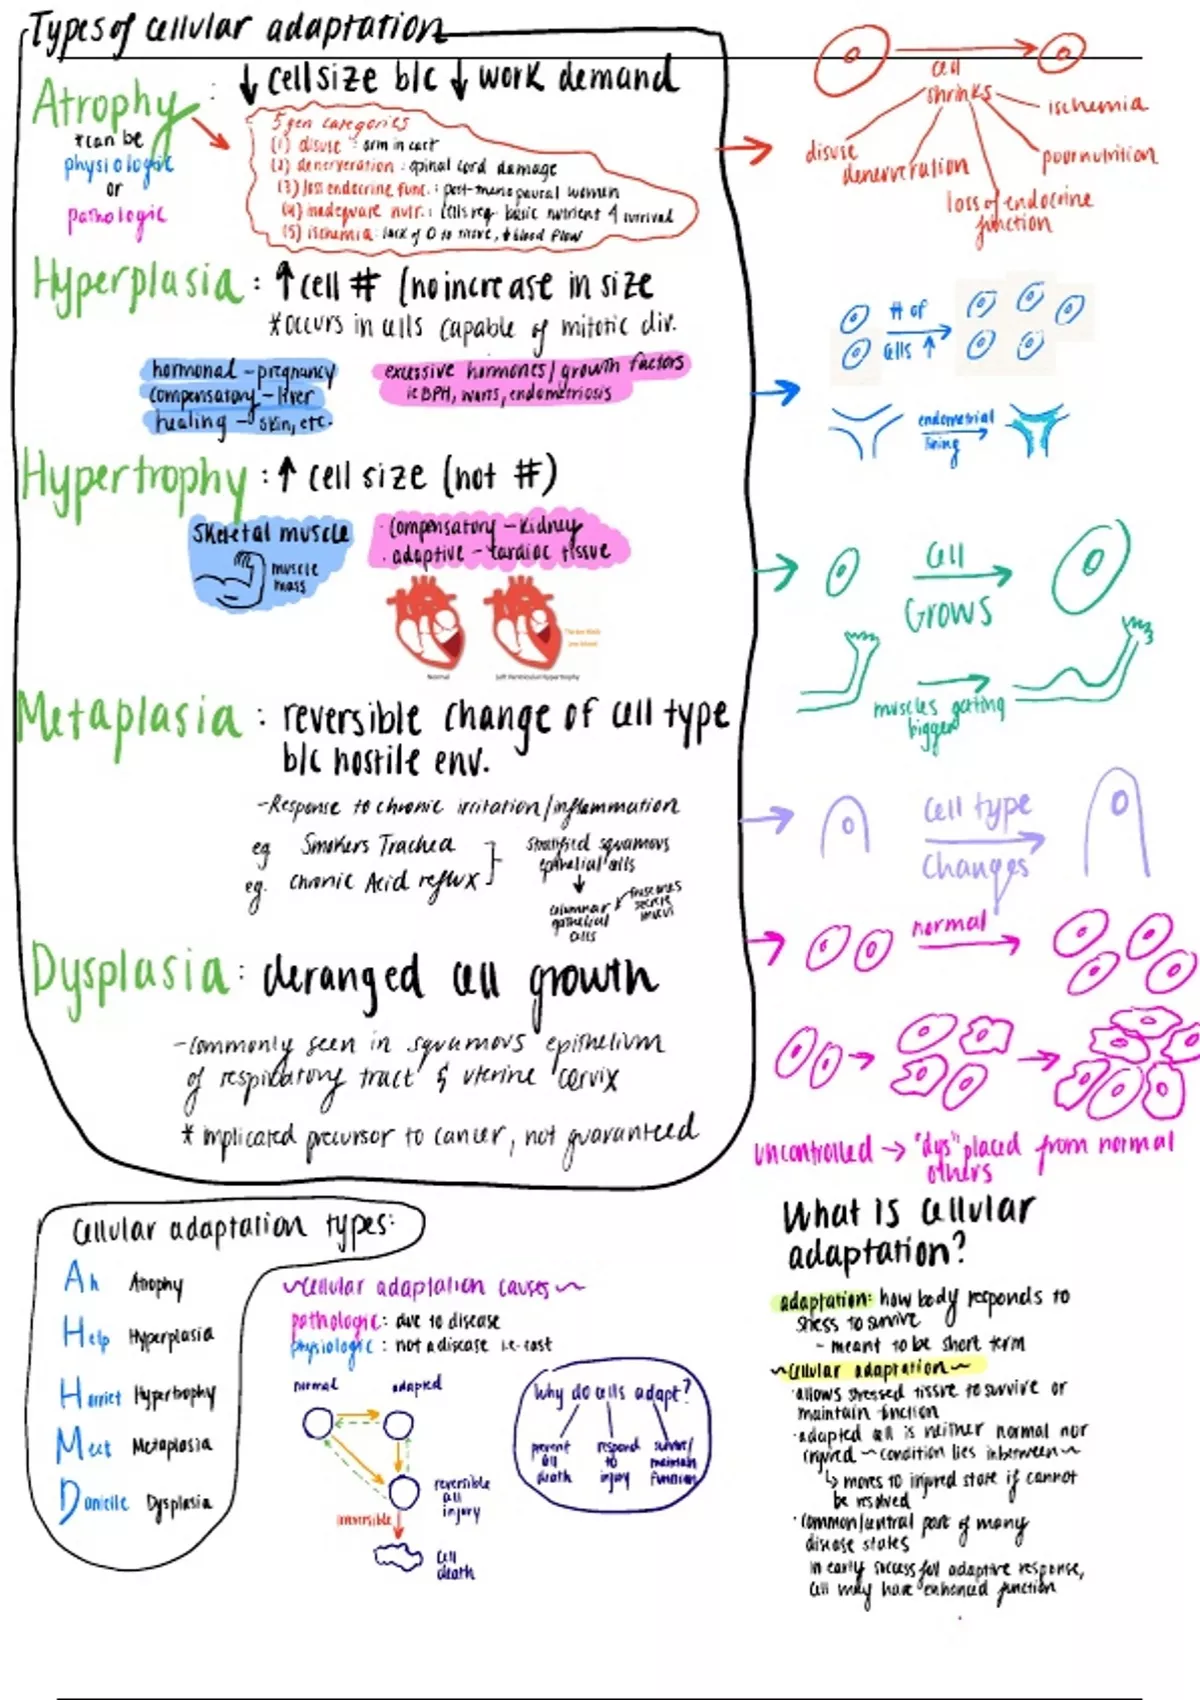 Types of cellular adaptation
Atrophy : ↓ cell size b/c ↓ work demand
*can be
physiologic
or
pathologic
5 gen categories
(1) disuse : arm in cast
(2) denerveration : spinal cord damage
(3) loss endocrine func. : post-menopausal women
(4) inadequate nutr. : cells req. basic nutrient 4 survival
(5) ischemia: lack of O to tissue, ↓ blood flow
cell
shrinks
ischemia
disuse
denerveration
poor nutrition
loss of endocrine
function
Hyperplasia : ↑ cell # (no increase in size
*occurs in cells capable of mitotic div.
hormonal - pregnancy
compensatory - liver
healing - skin, etc.
excessive hormones/growth factors
ie BPH, warts, endometriosis
# of
cells ↑
endometrial
lining
Hypertrophy : ↑ cell size (not #)
Skeletal muscle
muscle
mass
· compensatory - kidney
· adaptive - cardiac tissue
Normal
Left Ventricular Hypertrophy
cell
Grows
muscles getting
bigger
Metaplasia : reversible change of cell type
b/c hostile env.
-Response to chronic irritation/inflammation
eg Smokers Trachea
eg. chronic Acid reflux
stratified squamous
epithelial cells
↓
columnar
epithelial
cells
secrete
Cell type
Changes
Dysplasia : deranged cell growth
-commonly seen in squamous epithelium
of respiratory tract & uterine cervix
* implicated precursor to cancer, not guaranteed
normal
uncontrolled → "dys"placed from normal
others
Cellular adaptation types:
Ah Atrophy
Help Hyperplasia
Harriet Hypertrophy
Meet Metaplasia
Danielle Dysplasia
~Cellular adaptation causes~
pathologic: due to disease
physiologic : not a disease i.e. cast
normal adapted
reversible
cell
injury
irreversible
cell
death
Why do cells adapt?
prevent
cell
death
respond
to
injury
survive/
maintain
function
What is cellular
adaptation?
adaptation: how body responds to
stress to survive
- meant to be short term
~Cellular adaptation~
·allows stressed tissue to survive or
maintain function
·adapted cell is neither normal nor
injured ~condition lies inbetween~
↳ moves to injured state if cannot
be resolved
·common/central part of many
disease states
in early successful adaptive response,
cell may have enhanced function